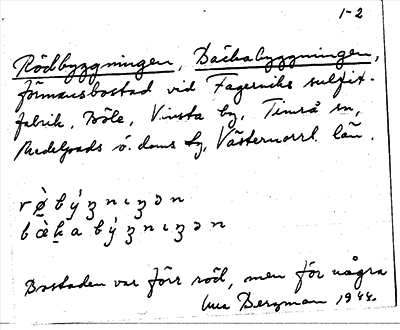 1-2
Rödbyggningen, Backabyggningen,
förmansbostad vid Fagerviks sulfit-
fabrik, Böle, Vivsta by, Timrå sn,
Medelpads ö. doms. hg, Västernorrl. län.
Bostaden var förr röd, men för några
Bergman 1944.